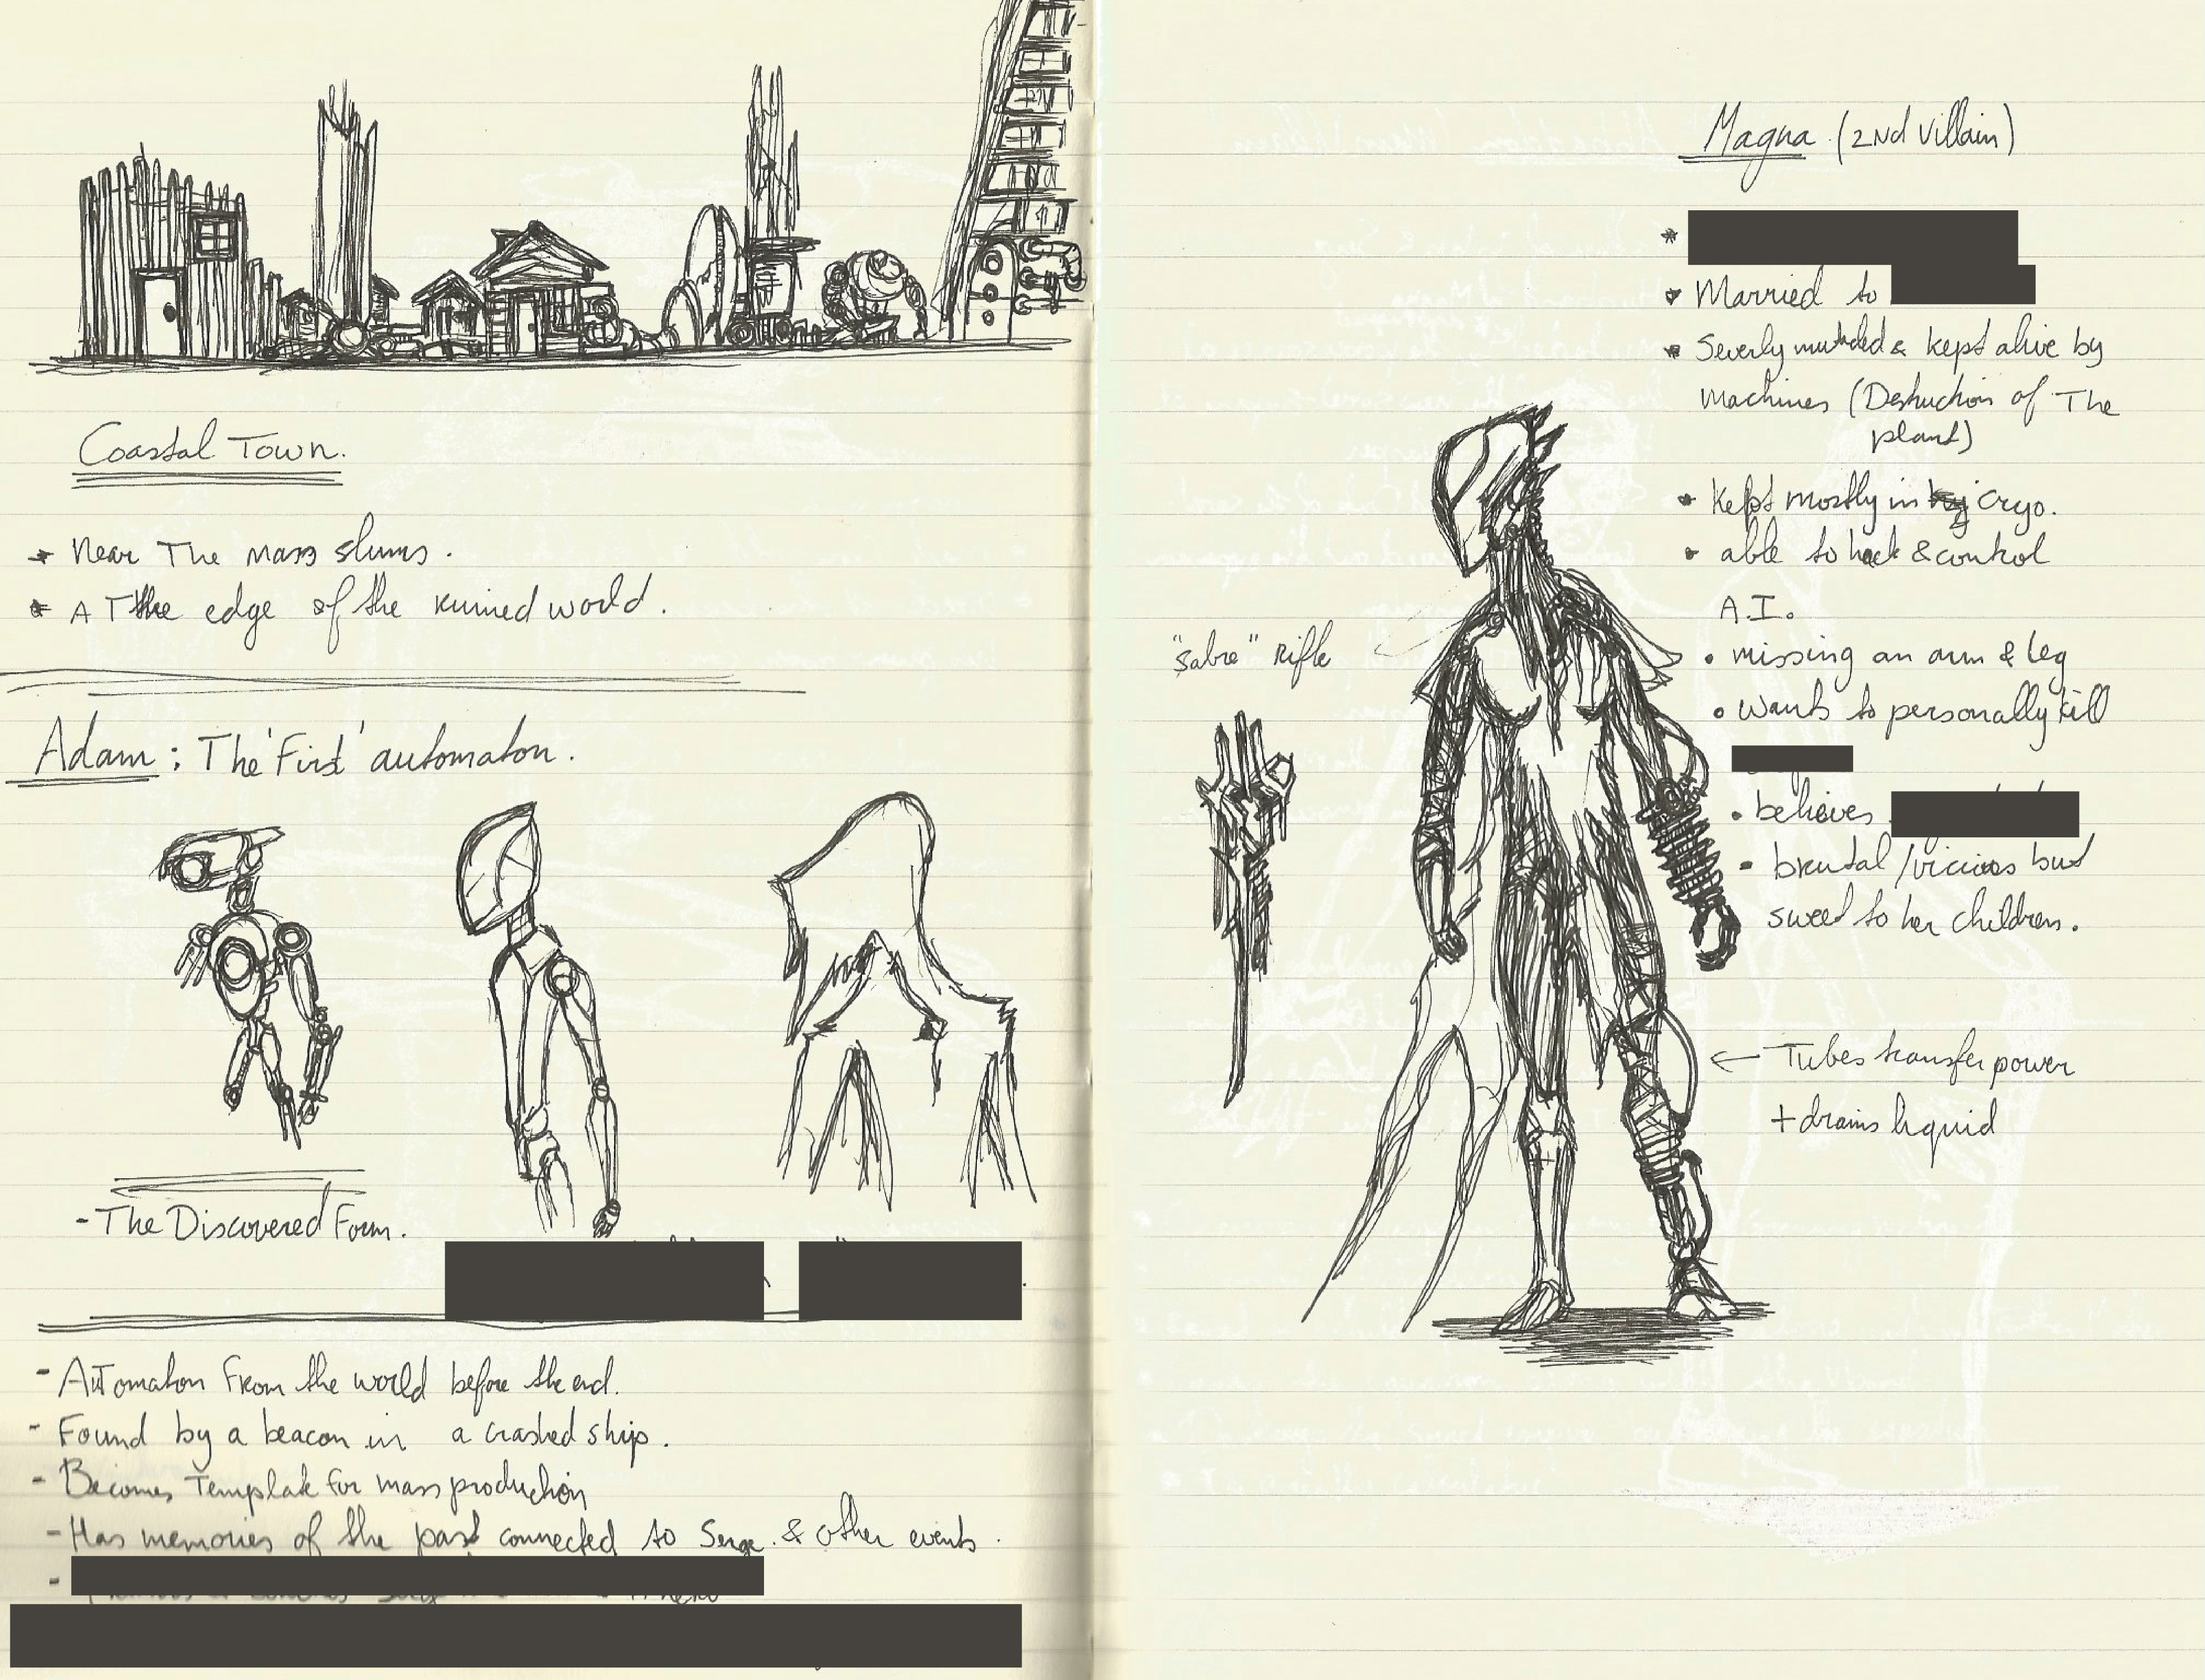 Coastal Town.
* Near The mass slums.
* AT the edge of the ruined world.
Adam : The 'First' automaton.
- The Discovered Form.
- AuTomaton From the world before the end.
- Found by a beacon in a crashed ship.
- Becomes Template for mass production
- Has memories of the past connected to Serge. & other events.
-
Magna (2Nd Villain)
*
* Married to
* Severly mutated & kept alive by
machines (Destruction of The
plant)
* Kept mostly in cryo.
• able to hack & control
A.I.
• missing an arm & leg
• wants to personally kill
• believes
• brutal / vicious but
sweet to her children.
"Sabre" Rifle
← Tubes transfer power
+ drains liquid